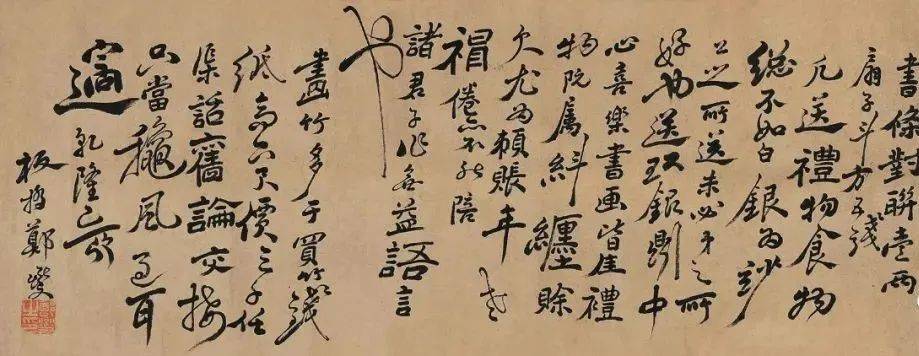 書條對聯壹兩
扇子斗方五錢
凡送禮物食物
總不如白銀為妙
公之所送未必弟之所
好也送現銀則中
心喜樂書画皆佳禮
物既屬糾纏賒
欠尤為賴賬年老
神倦亦不能陪
諸君子作無益語言
也
畫竹多于買竹錢
紙高六尺價三千任
渠話舊論交接
只當秋風過耳
邊 乾隆己卯
板橋鄭燮